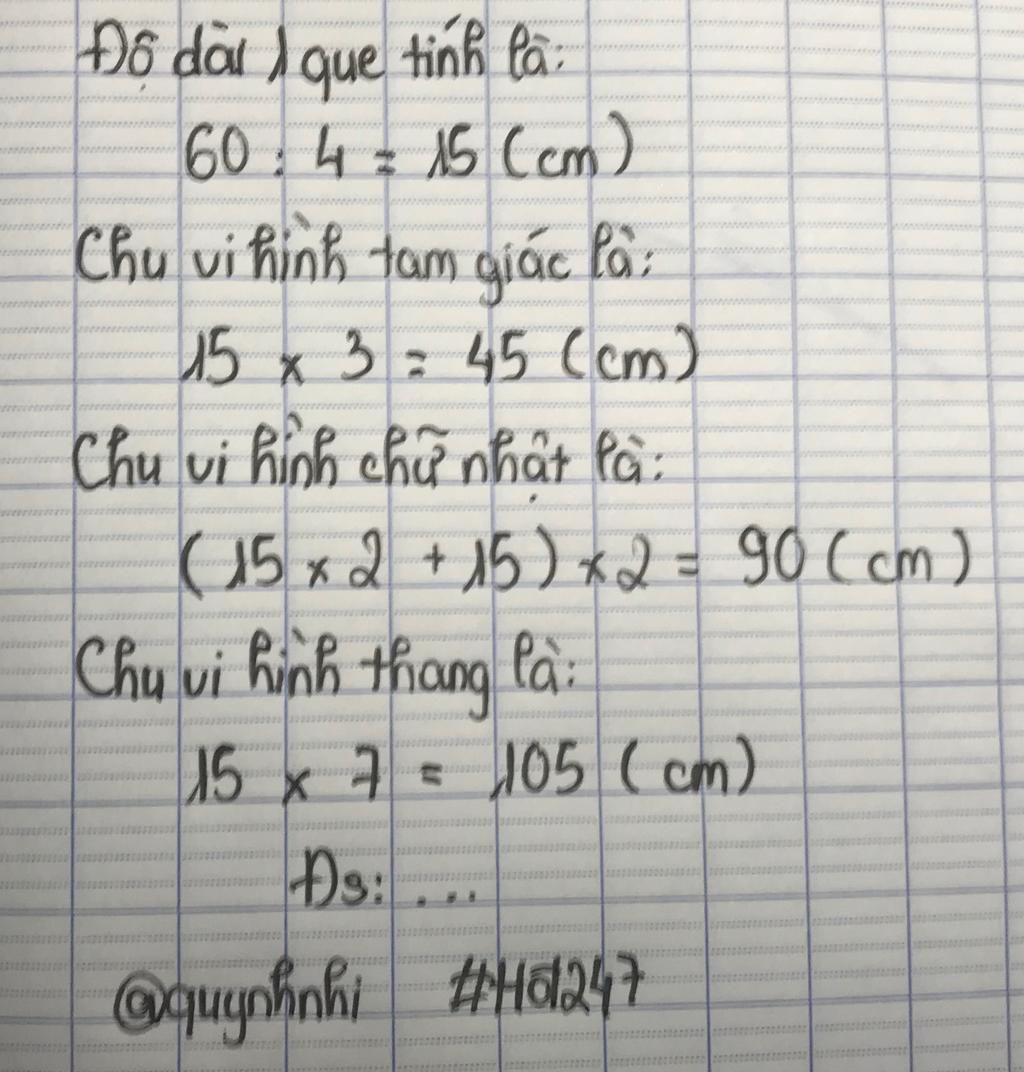 Độ dài 1 que tính là:
60 : 4 = 15 (cm)
Chu vi hình tam giác là:
15 x 3 = 45 (cm)
Chu vi hình chữ nhật là:
(15 x 2 + 15) x 2 = 90 (cm)
Chu vi hình thang là:
15 x 7 = 105 (cm)
Đs: ...
@quynhnhi #Hỏi247